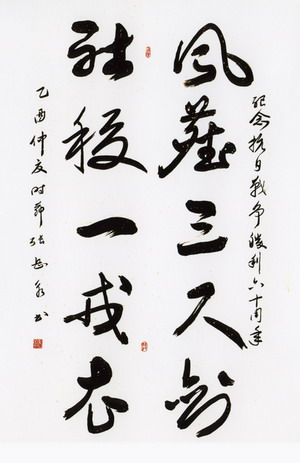 纪念抗日戰争勝利六十周年
风塵三尺劍
社稷一戎衣
乙酉仲夏时节张书